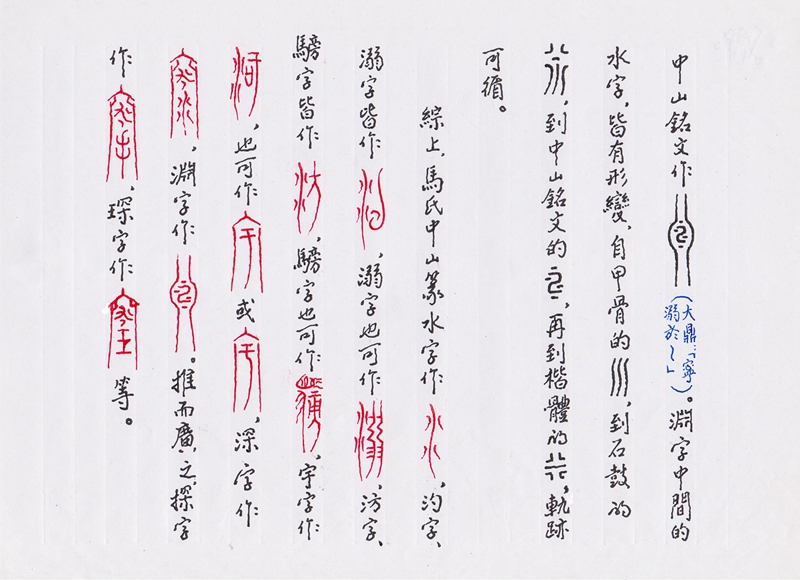 中山銘文作（大鼎：「寧溺於～」）。淵字中間的
水字，皆有形變，自甲骨的，到石鼓的
，到中山銘文的，再到楷體的，軌跡
可循。
綜上，馬氏中山篆水字作，汋字、
溺字皆作，溺字也可作，汸字、
騯字皆作，騯字也可作，宇字作
，也可作或，深字作
，淵字作。推而廣之，探字
作，琛字作等。